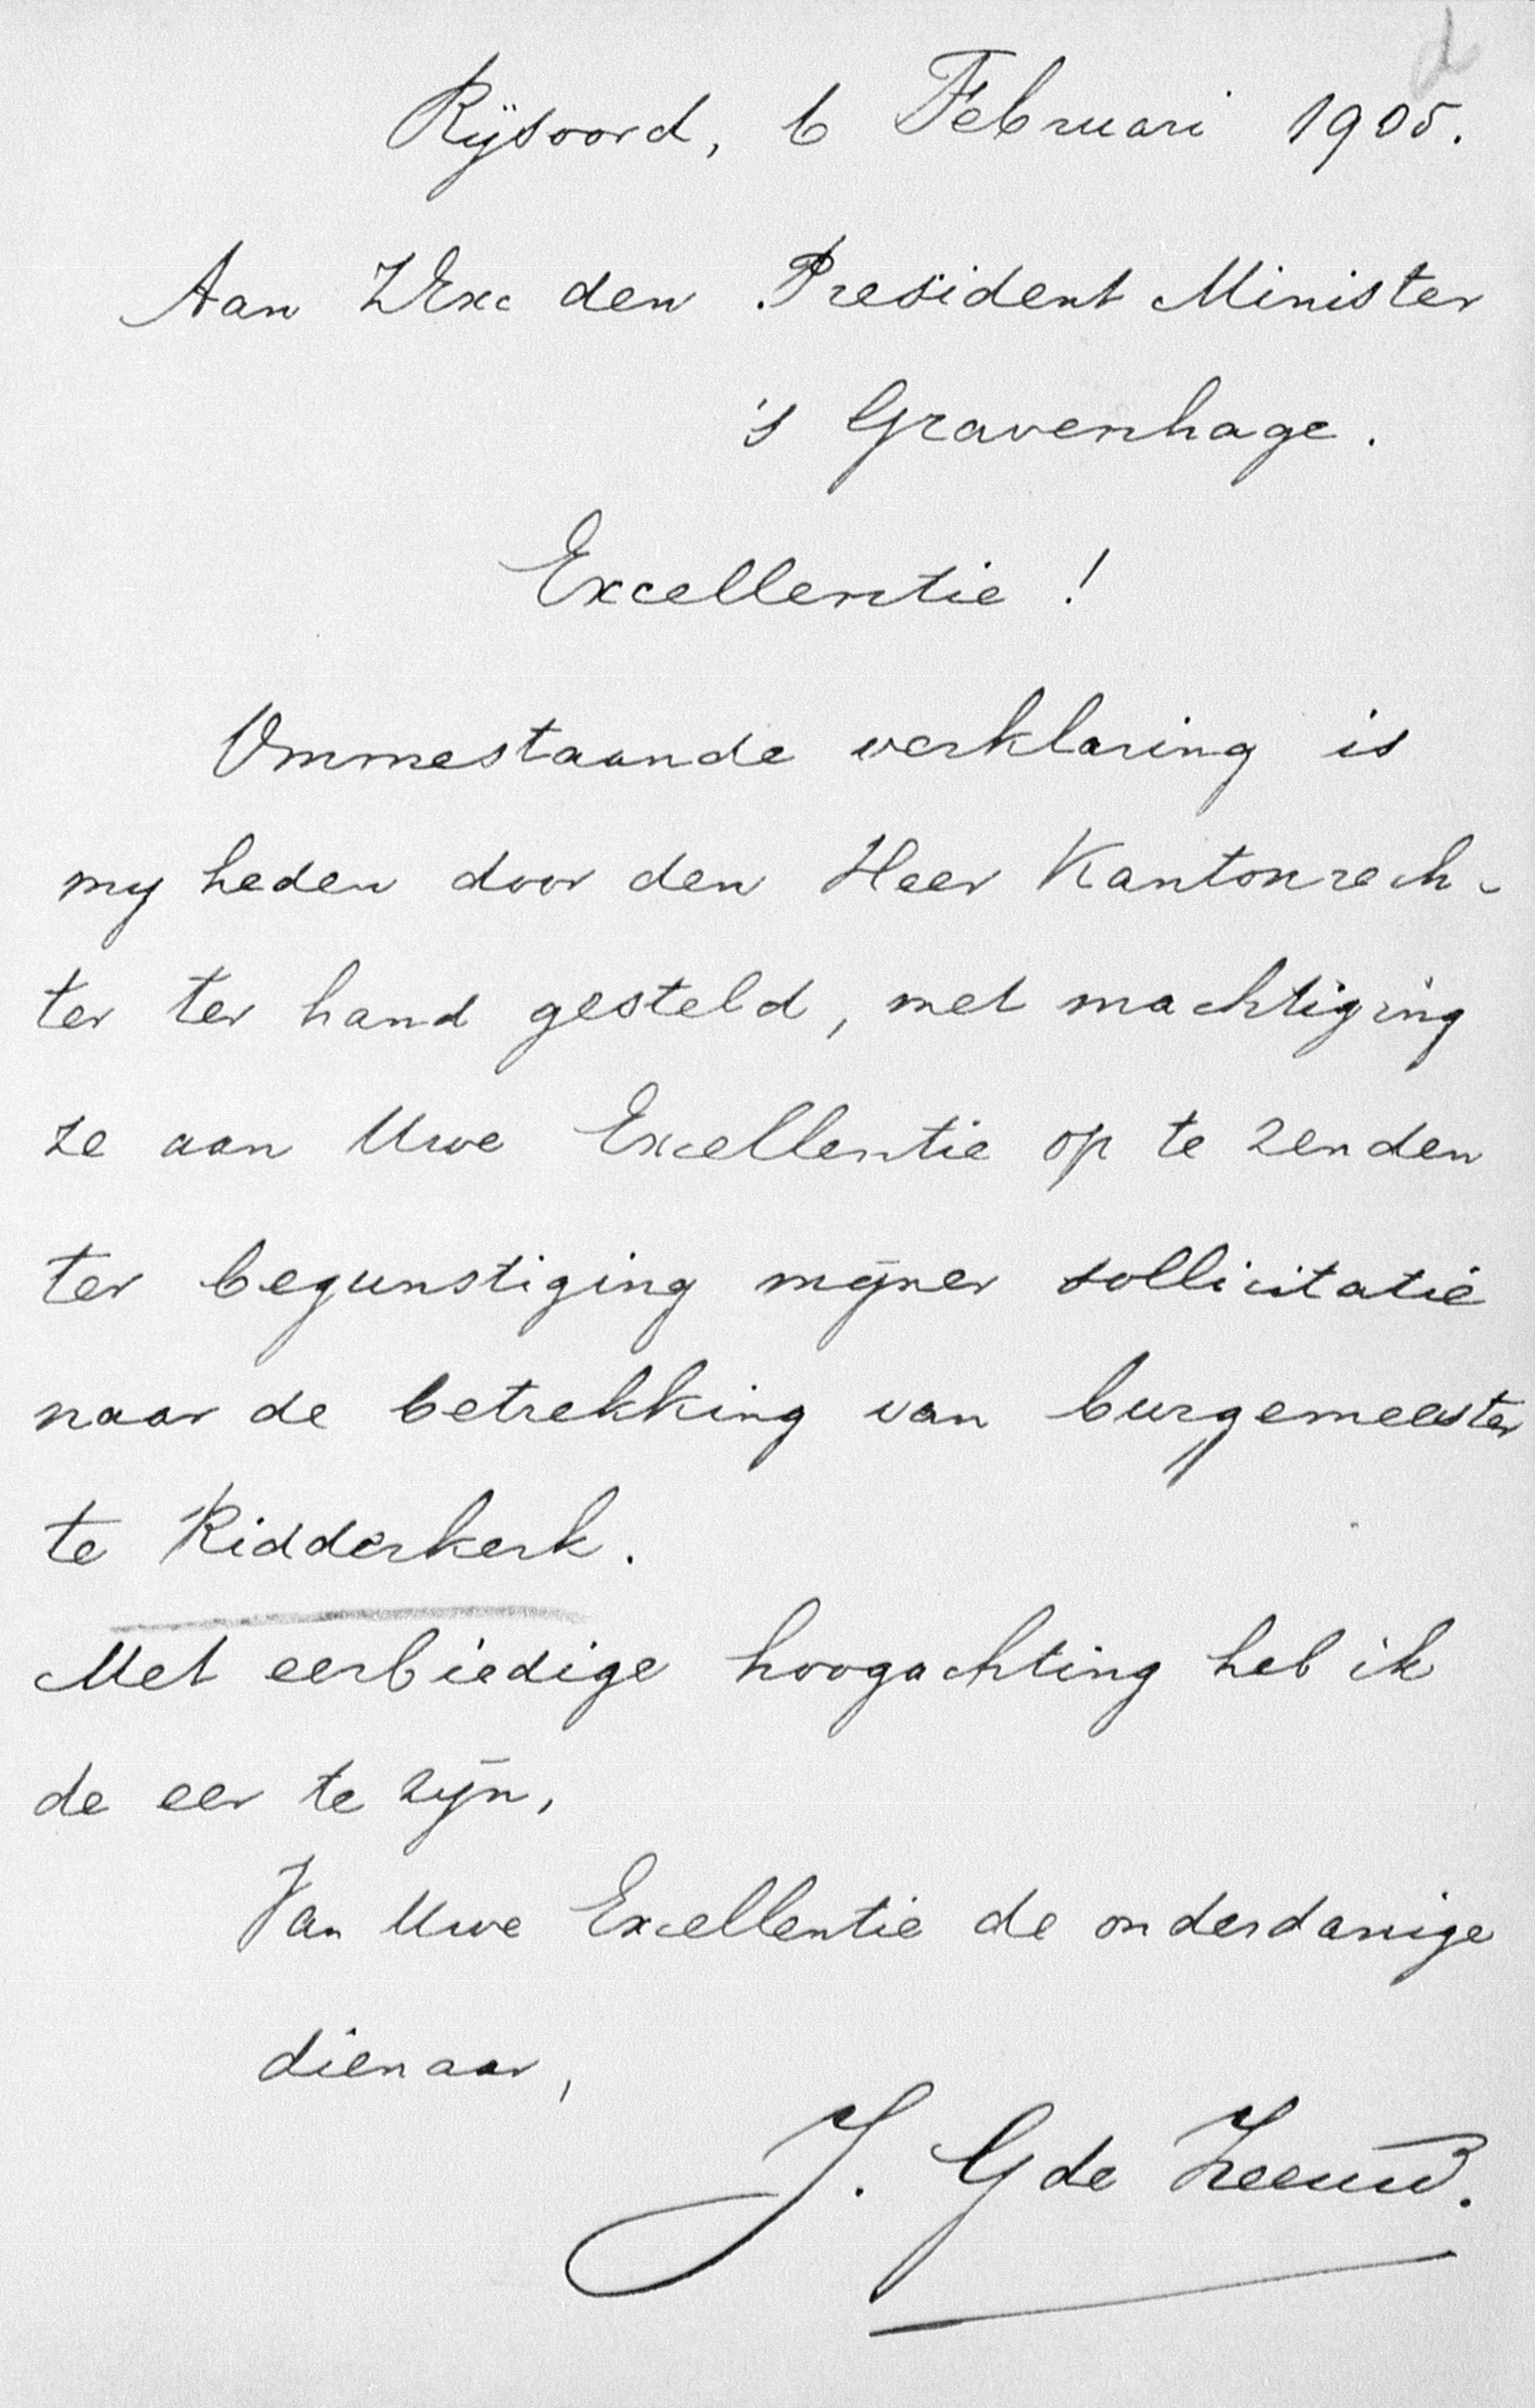 d
Rijsoord, 6 Februari 1905.
Aan ZExc den President Minister
's Gravenhage.
Excellentie!
Ommestaande verklaring is
my heden door den Heer Kantonrech-
ter ter hand gesteld, met machtiging
ze aan Uwe Excellentie op te zenden
ter begunstiging mijner sollicitatie
naar de betrekking van burgemeester
te Ridderkerk.
Met eerbiedige hoogachting heb ik
de eer te zijn,
Van Uwe Excellentie de onderdanige
dienaar,
J. G de Zeeuw.